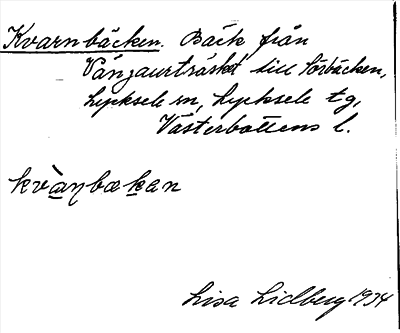 Kvarnbäcken. Bäck från
Vänjaurträsket till Örbäcken,
Lycksele sn, Lycksele tg,
Västerbottens l.
kvàɳbækan
Lisa Lidberg 1934